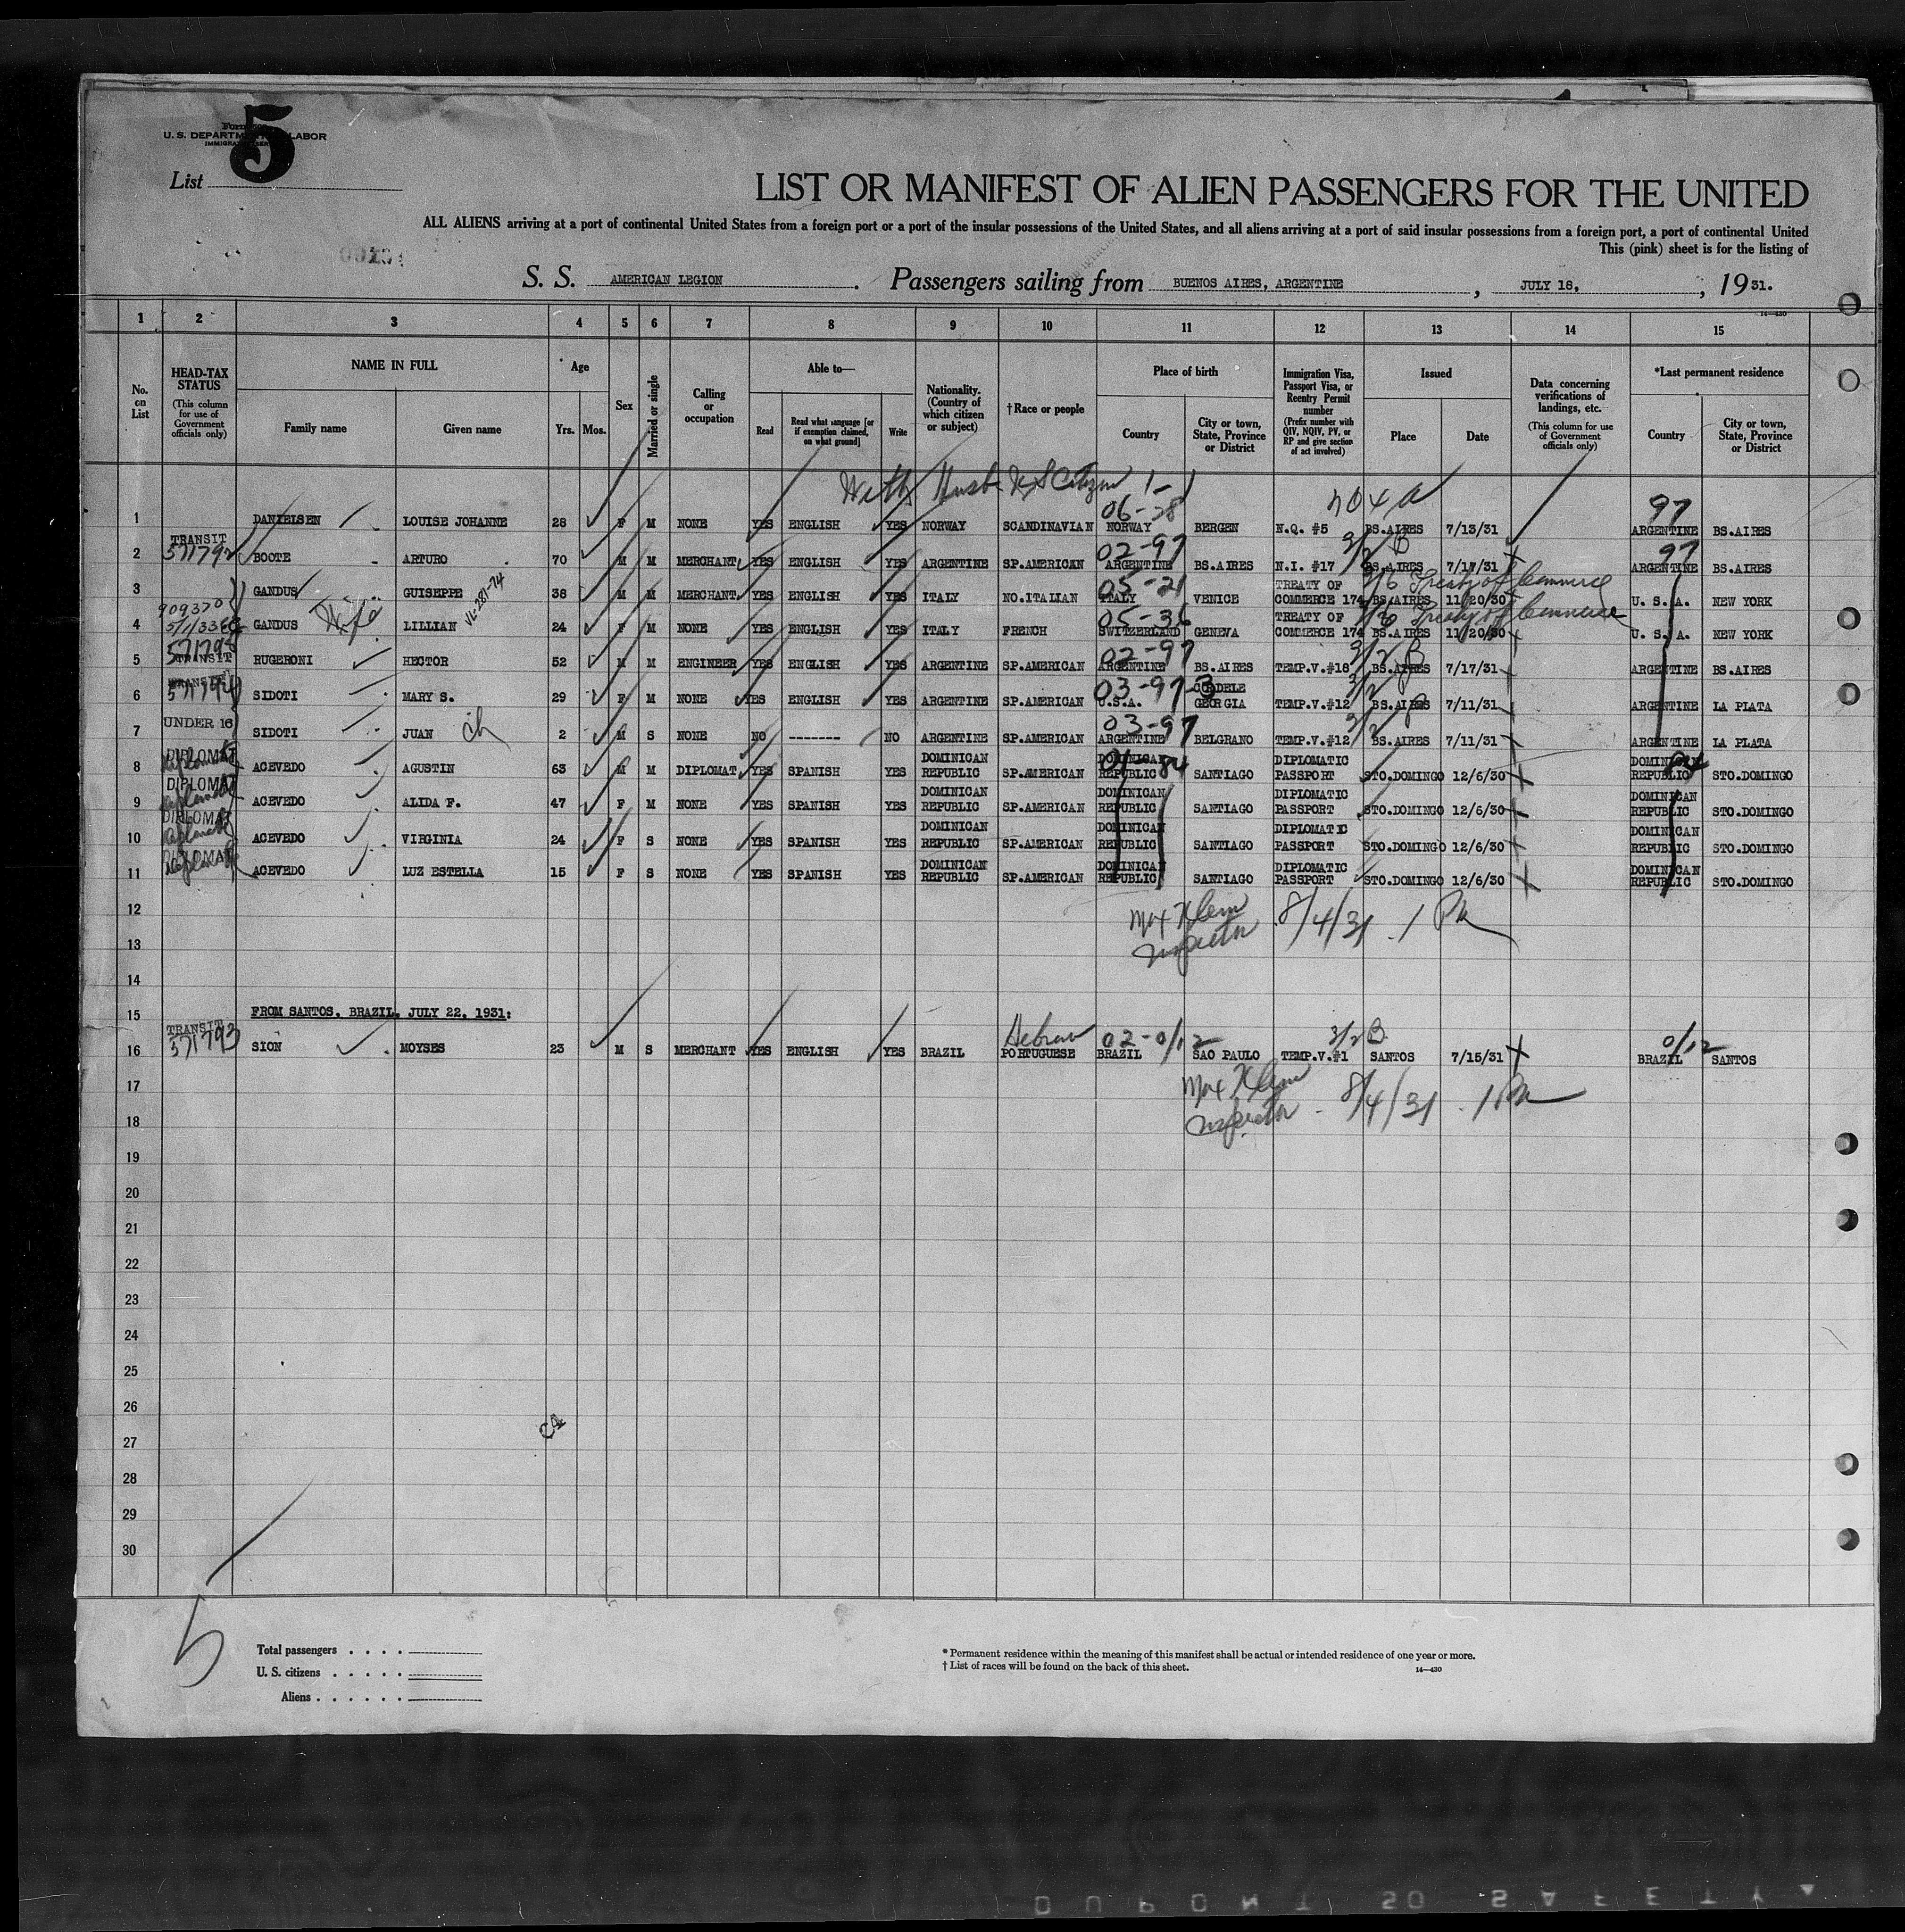 5
U. S. DEPARTM LABOR
List
LIST OR MANIFEST OF ALIEN PASSENGERS FOR THE UNITED
ALL ALIENS arriving at a port of continental United States from a foreign port or a part of the insular possessions of the United States, and all aliens arriving at a port of said insular possessions from a foreign port, a port of continental United
This (pink) sheet is for the listing of
S. S. AMERICAN LEGION . Passengers sailing from BUENOS AIRES, ARGENTINE , JULY 18, , 19 31.
14—430
1 2 3 4 5 6 7 8 9 10 11 12 13 14 15
No. on List
HEAD-TAX STATUS (This column for use of Government officials only)
NAME IN FULL
Family name Given name
Age
Yrs. Mos.
Sex
Married or single
Calling or occupation
Able to—
Read
Read what language [or if exemption claimed, on what ground]
Write
Nationality. (Country of which citizen or subject)
† Race or people
Place of birth
Country
City or town, State, Province or District
Immigration Visa, Passport Visa, or Reentry Permit number (Prefix number with QIV, NQIV, PV, or RP and give section of act involved)
Issued
Place Date
Data concerning verifications of landings, etc. (This column for use of Government officials only)
*Last permanent residence
Country
City or town, State, Province or District
With Husb. U S Citizen
06-28 704a 97
1 DANIELSEN LOUISE JOHANNE 28 F M NONE YES ENGLISH YES NORWAY SCANDINAVIAN NORWAY BERGEN N.Q. #5 BS.AIRES 7/13/31 ARGENTINE BS.AIRES
TRANSIT 02-97 3/2 B 97
2 571792 BOOTE ARTURO 70 M M MERCHANT YES ENGLISH YES ARGENTINE SP.AMERICAN ARGENTINE BS.AIRES N.I. #17 BS.AIRES 7/17/31 ARGENTINE BS.AIRES
05-21 3/6 Treaty of Commerce
3 GANDUS GUISEPPE VL-281-74 38 M M MERCHANT YES ENGLISH YES ITALY NO.ITALIAN ITALY VENICE TREATY OF COMMERCE 174 BS.AIRES 11/20/30 U. S. A. NEW YORK
909370 05-36 3/6 Treaty of Commerce
4 GANDUS Wife LILLIAN 24 F M NONE YES ENGLISH YES ITALY FRENCH SWITZERLAND GENEVA TREATY OF COMMERCE 174 BS.AIRES 11/20/30 U. S. A. NEW YORK
TRANSIT 02-97 3/2 B
5 RUGERONI HECTOR 52 M M ENGINEER YES ENGLISH YES ARGENTINE SP.AMERICAN ARGENTINE BS.AIRES TEMP.V.#18 BS.AIRES 7/17/31 ARGENTINE BS.AIRES
TRANSIT 03-97-3 3/2 B
6 571794 SIDOTI MARY S. 29 F M NONE YES ENGLISH YES ARGENTINE SP.AMERICAN U.S.A. CORDELE GEORGIA TEMP.V.#12 BS.AIRES 7/11/31 ARGENTINE LA PLATA
UNDER 16 03-97 3/2
7 SIDOTI JUAN ch 2 M S NONE NO -------- NO ARGENTINE SP.AMERICAN ARGENTINE BELGRANO TEMP.V.#12 BS.AIRES 7/11/31 ARGENTINE LA PLATA
DIPLOMAT 01-84 84
8 ACEVEDO AGUSTIN 63 M M DIPLOMAT YES SPANISH YES DOMINICAN REPUBLIC SP.AMERICAN DOMINICAN REPUBLIC SANTIAGO DIPLOMATIC PASSPORT STO.DOMINGO 12/6/30 DOMINICAN REPUBLIC STO.DOMINGO
DIPLOMAT
9 ACEVEDO ALIDA F. 47 F M NONE YES SPANISH YES DOMINICAN REPUBLIC SP.AMERICAN DOMINICAN REPUBLIC SANTIAGO DIPLOMATIC PASSPORT STO.DOMINGO 12/6/30 DOMINICAN REPUBLIC STO.DOMINGO
DIPLOMAT
10 ACEVEDO VIRGINIA 24 F S NONE YES SPANISH YES DOMINICAN REPUBLIC SP.AMERICAN DOMINICAN REPUBLIC SANTIAGO DIPLOMATIC PASSPORT STO.DOMINGO 12/6/30 DOMINICAN REPUBLIC STO.DOMINGO
DIPLOMAT
11 ACEVEDO LUZ ESTELLA 15 F S NONE YES SPANISH YES DOMINICAN REPUBLIC SP.AMERICAN DOMINICAN REPUBLIC SANTIAGO DIPLOMATIC PASSPORT STO.DOMINGO 12/6/30 DOMINICAN REPUBLIC STO.DOMINGO
12 Max Klein 8/4/31 . 1 PM
13 Inspector
14
15 FROM SANTOS, BRAZIL, JULY 22, 1931:
TRANSIT Hebrew 02-0/12 3/2 B 0/12
16 571793 SION MOYSES 23 M S MERCHANT YES ENGLISH YES BRAZIL PORTUGUESE BRAZIL SAO PAULO TEMP.V.#1 SANTOS 7/15/31 BRAZIL SANTOS
17 Max Klein 8/4/31 . 1 PM
18 Inspector
19
20
21
22
23
24
25
26
27
28
29
30
5
Total passengers . . . .
U. S. citizens . . . . .
Aliens . . . . . .
* Permanent residence within the meaning of this manifest shall be actual or intended residence of one year or more.
† List of races will be found on the back of this sheet.
14—430
DUPONT SO SAFETY